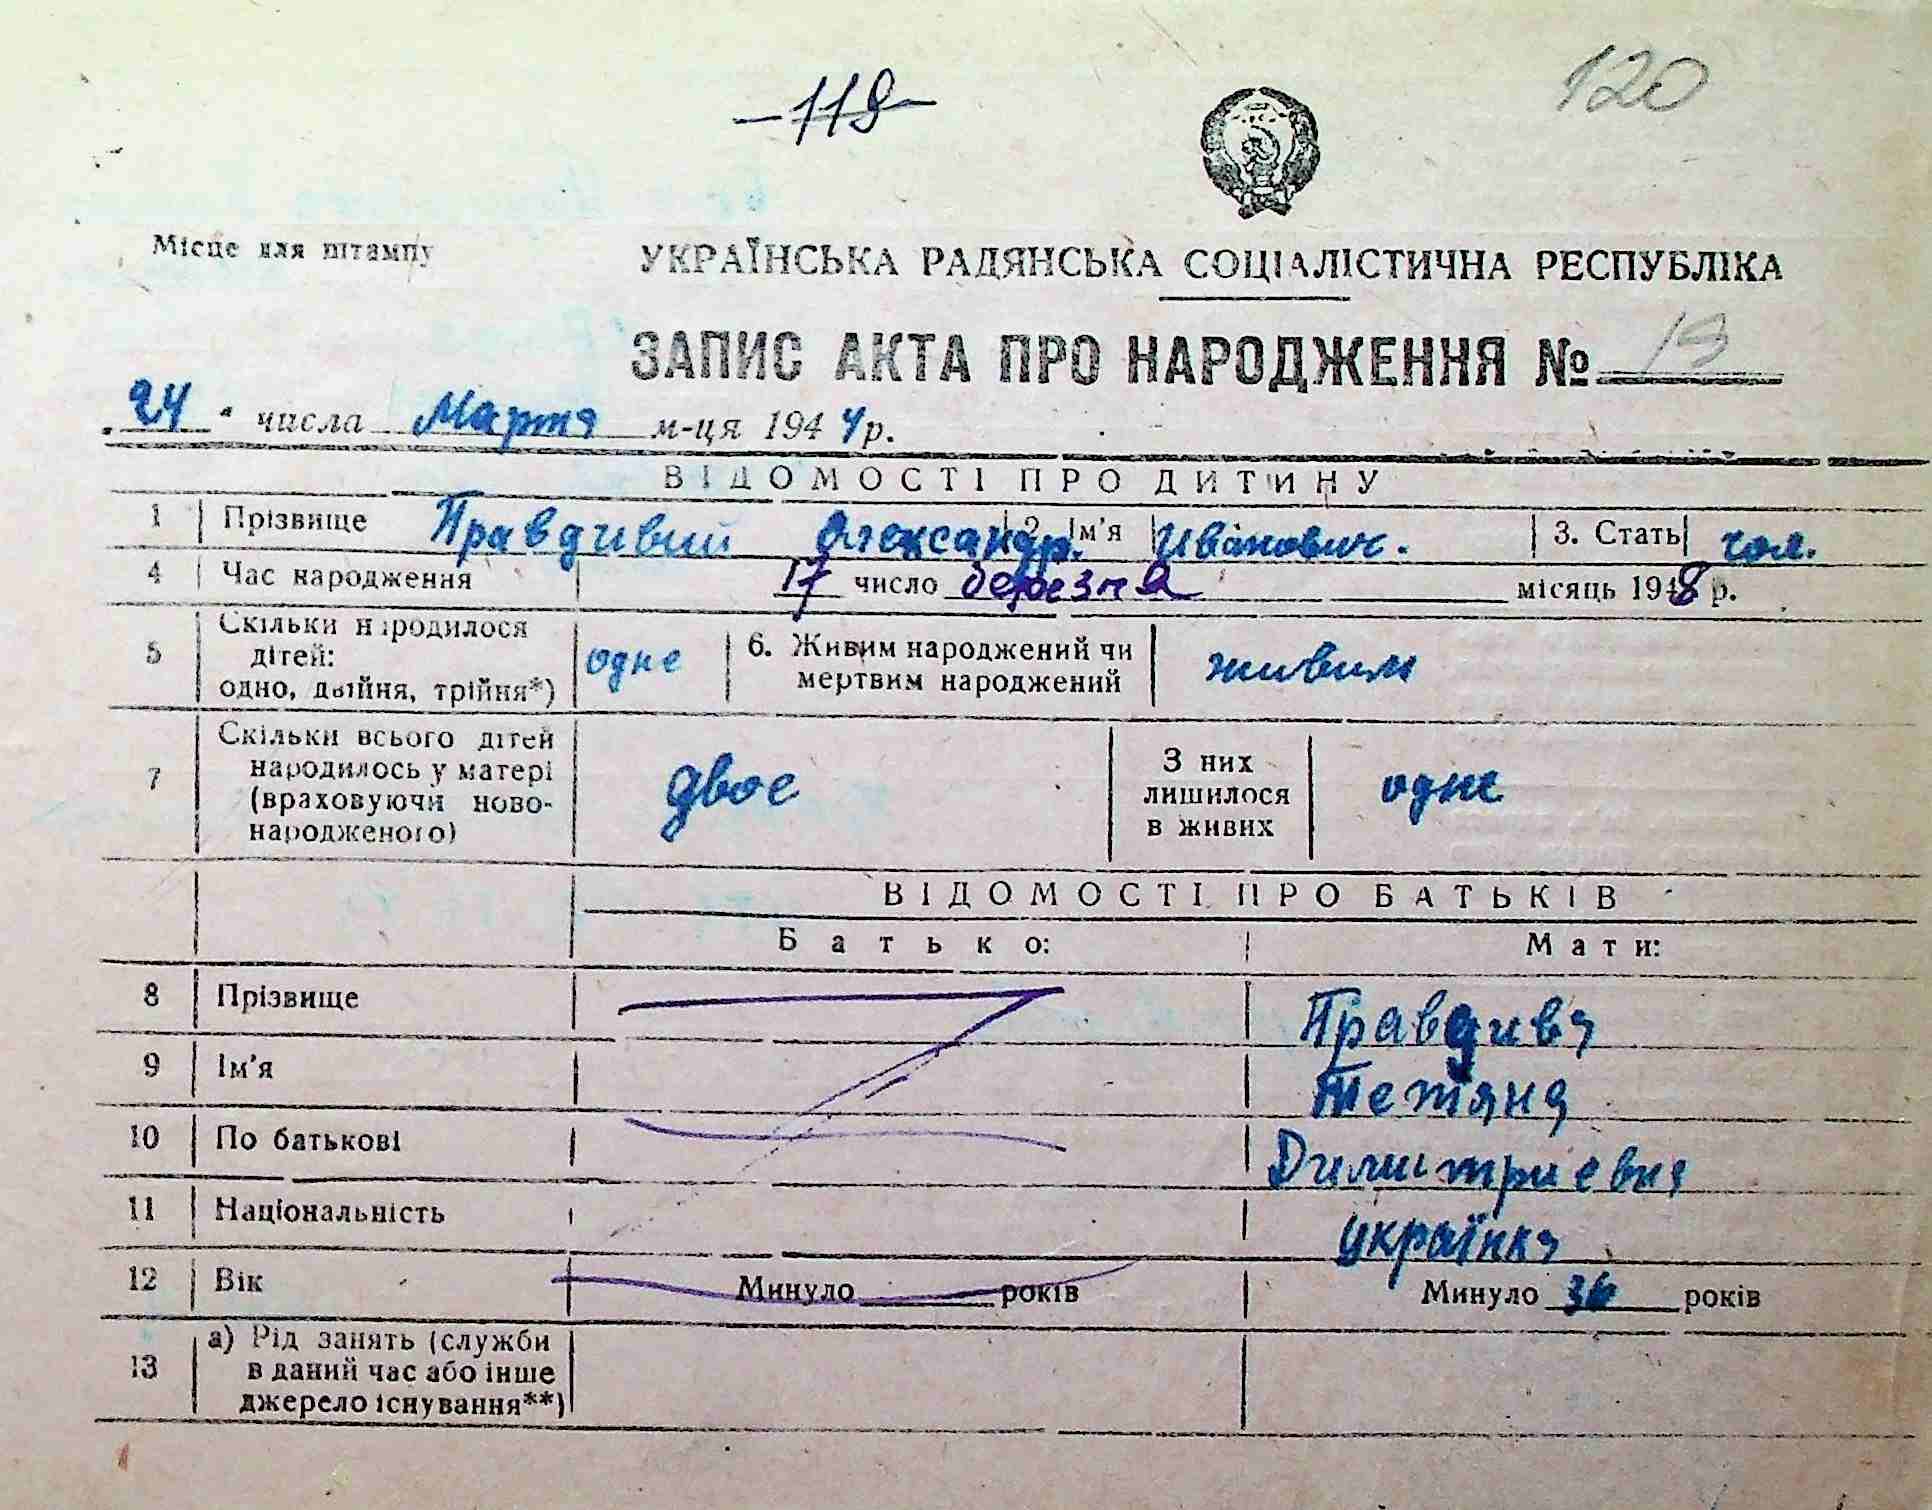 -118-
120
Місце для штампу
УКРАЇНСЬКА РАДЯНСЬКА СОЦІАЛІСТИЧНА РЕСПУБЛІКА
ЗАПИС АКТА ПРО НАРОДЖЕННЯ № 19
„24“ числа Мартя м-ця 1944 р.
ВІДОМОСТІ ПРО ДИТИНУ
1 Прізвище Правдивий Олександр. 2. Ім'я Иванович. 3. Стать чол.
4 Час народження 17 число березня місяць 1948 р.
5 Скільки народилося дітей: одно, двійня, трійня*) одне 6. Живим народжений чи мертвим народжений живим
7 Скільки всього дітей народилось у матері (враховуючи ново-народженого) двое З них лишилося в живих одне
ВІДОМОСТІ ПРО БАТЬКІВ
Батько: Мати:
8 Прізвище Правдивя
9 Ім'я Тетяня
10 По батькові Димитриевня
11 Національність українкя
12 Вік Минуло років Минуло 36 років
13 а) Рід занять (служби в даний час або інше джерело існування**)